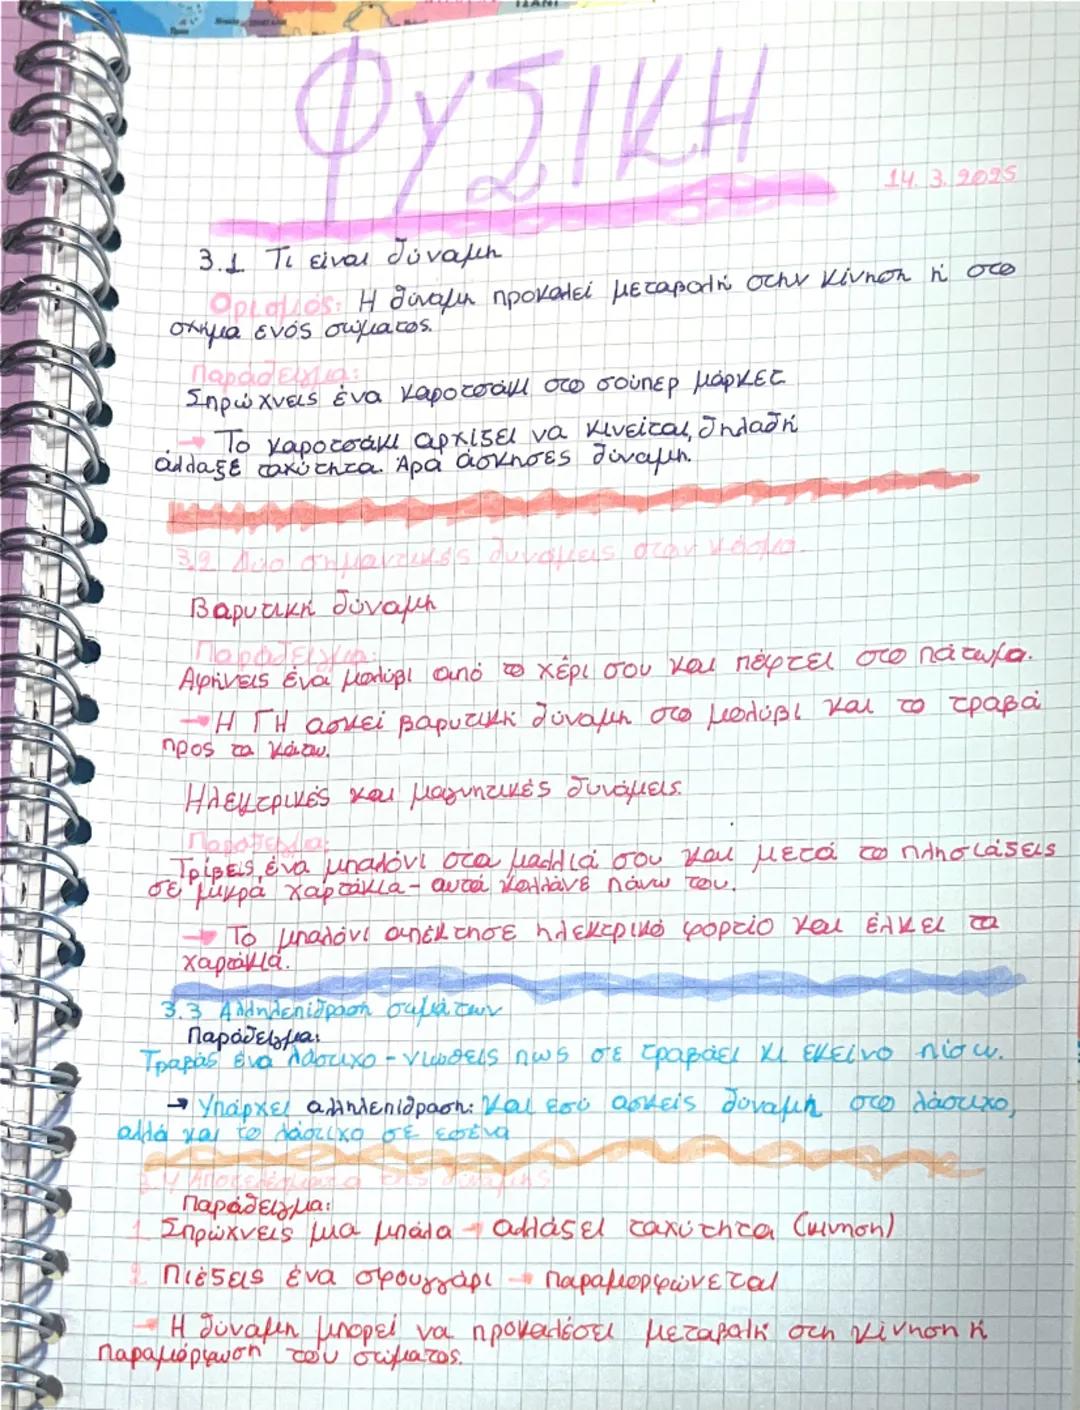 ΦΥΣΙΚΗ
14.3.2025
3.1 Τι είναι δύναμη
Ορισμός: Η δύναμη προκαλεί μεταβολή στην κίνηση ή στο
σχήμα ενός σώματος.
Παράδειγμα:
Σπρώχνεις ένα καροτσάκι στο σούπερ μάρκετ
→ Το καροτσάκι αρχίζει να κινείται, δηλαδή
άλλαξε ταχύτητα. Άρα άσκησες δύναμη.
3.2 Δύο σημαντικές δυνάμεις στον κόσμο.
Βαρυτική δύναμη
Παράδειγμα:
Αφήνεις ένα μολύβι από το χέρι σου και πέφτει στο πάτωμα.
→ Η ΓΗ ασκεί βαρυτική δύναμη στο μολύβι και το τραβά
προς τα κάτω.
Ηλεκτρικές και μαγνητικές δυνάμεις.
Παράδειγμα:
Τρίβεις ένα μπαλόνι στα μαλλιά σου και μετά το πλησιάζεις
σε μικρά χαρτάκια - αυτά κολλάνε πάνω του.
→ Το μπαλόνι απέκτησε ηλεκτρικό φορτίο και έλκει τα
χαρτάκια.
3.3 Αλληλεπίδραση σωμάτων
Παράδειγμα:
Τραβάς ένα λάστιχο - νιώθεις πως σε τραβάει κι εκείνο πίσω.
→ Υπάρχει αλληλεπίδραση: Και εσύ ασκείς δύναμη στο λάστιχο,
αλλά και το λάστιχο σε εσένα
3.4 Αποτελέσματα της δύναμης
Παράδειγμα:
1. Σπρώχνεις μια μπάλα → αλλάζει ταχύτητα (κίνηση)
2. Πιέζεις ένα σφουγγάρι → παραμορφώνεται
→ Η δύναμη μπορεί να προκαλέσει μεταβολή στη κίνηση ή
παραμόρφωση του σώματος.